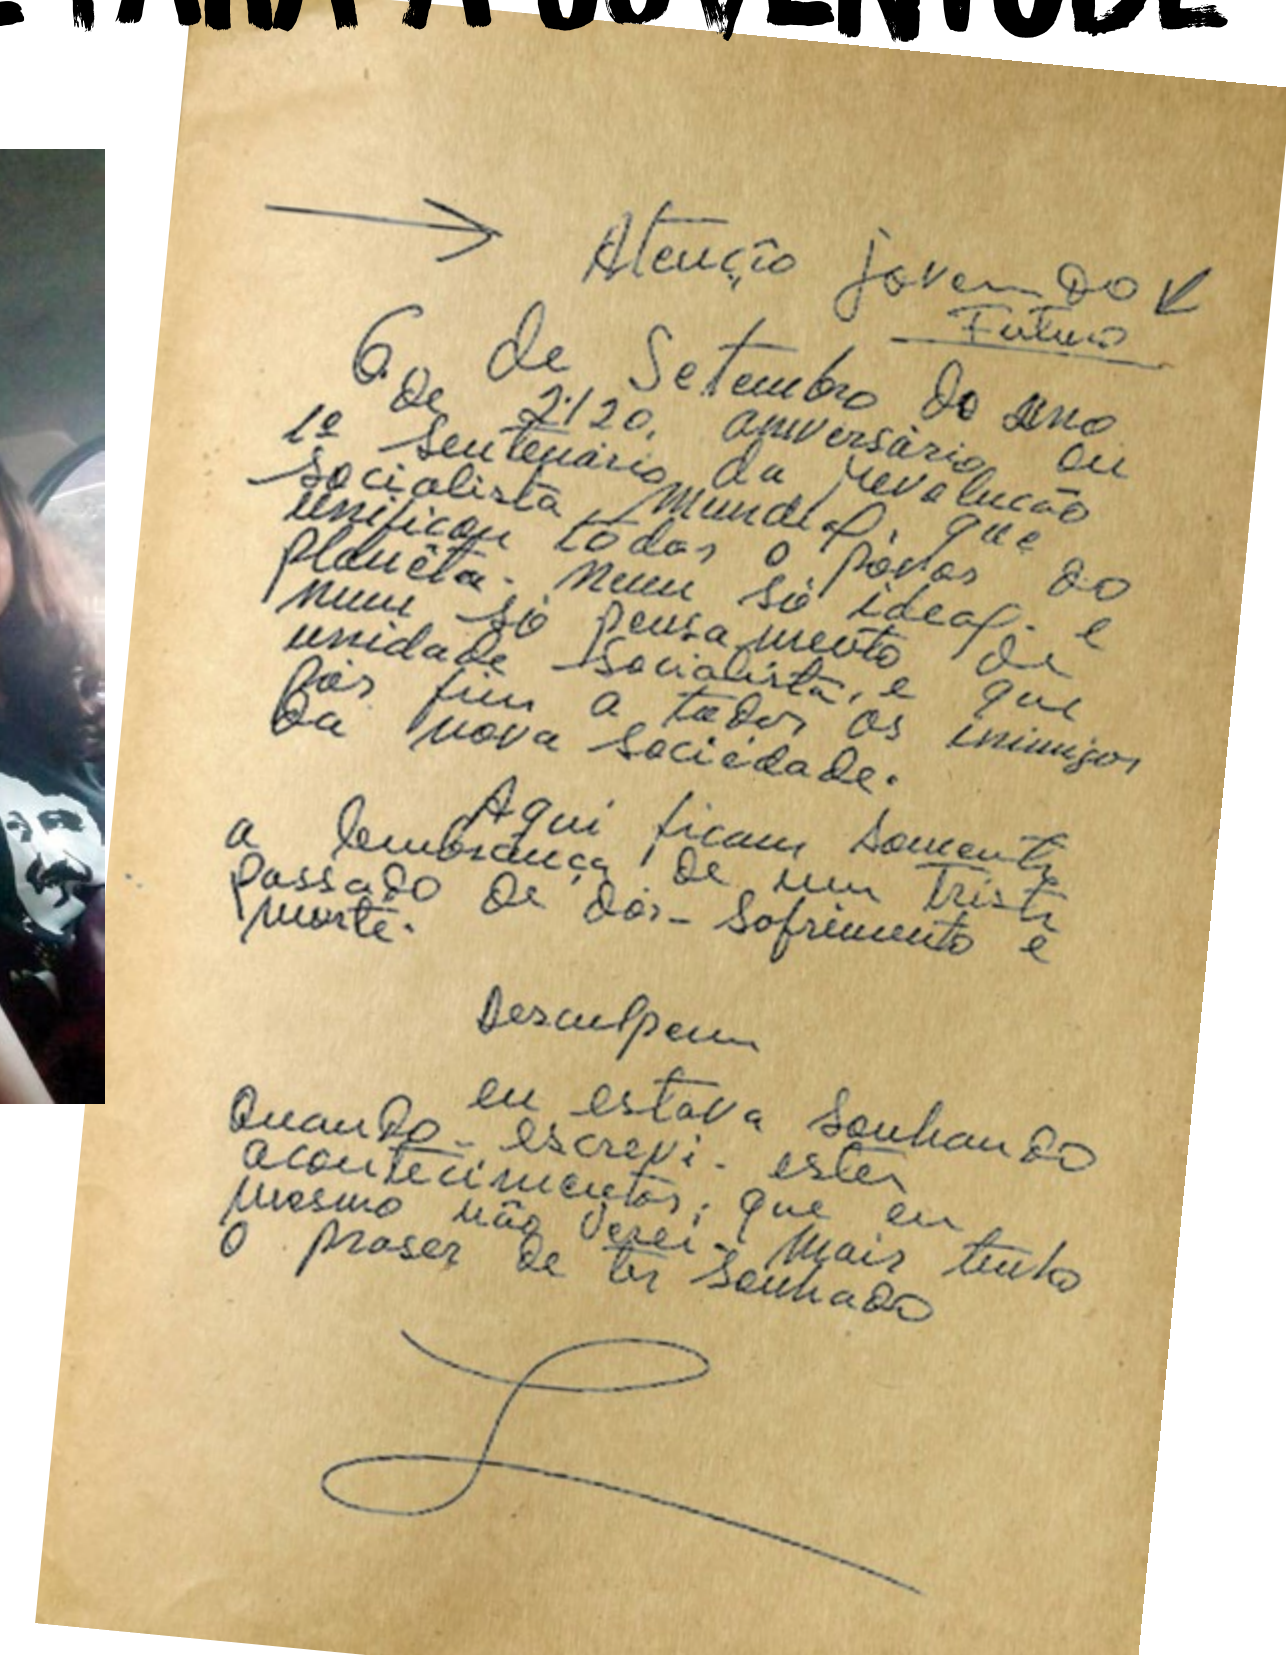 E PARA A JUVENTUDE
Atenção jovem do
Futuro
6 de Setembro do ano
de 2.120, aniversário ou
1º Sentenário da revolução
socialista mundial, que
unificou todos o povos do
planêta. num só ideal. e
num só pensamento de
unidade socialista, e que
pôs fim a todos os inimigos
da nova sociedade.
Aqui ficam somente
a lembrança de um triste
passado de dôr- sofrimento e
morte.
Desculpem
eu estava sonhando
Quando- escrevi- estes
acontecimentos, que eu
mesmo não verei- mais tenho
o praser de ter sonhado